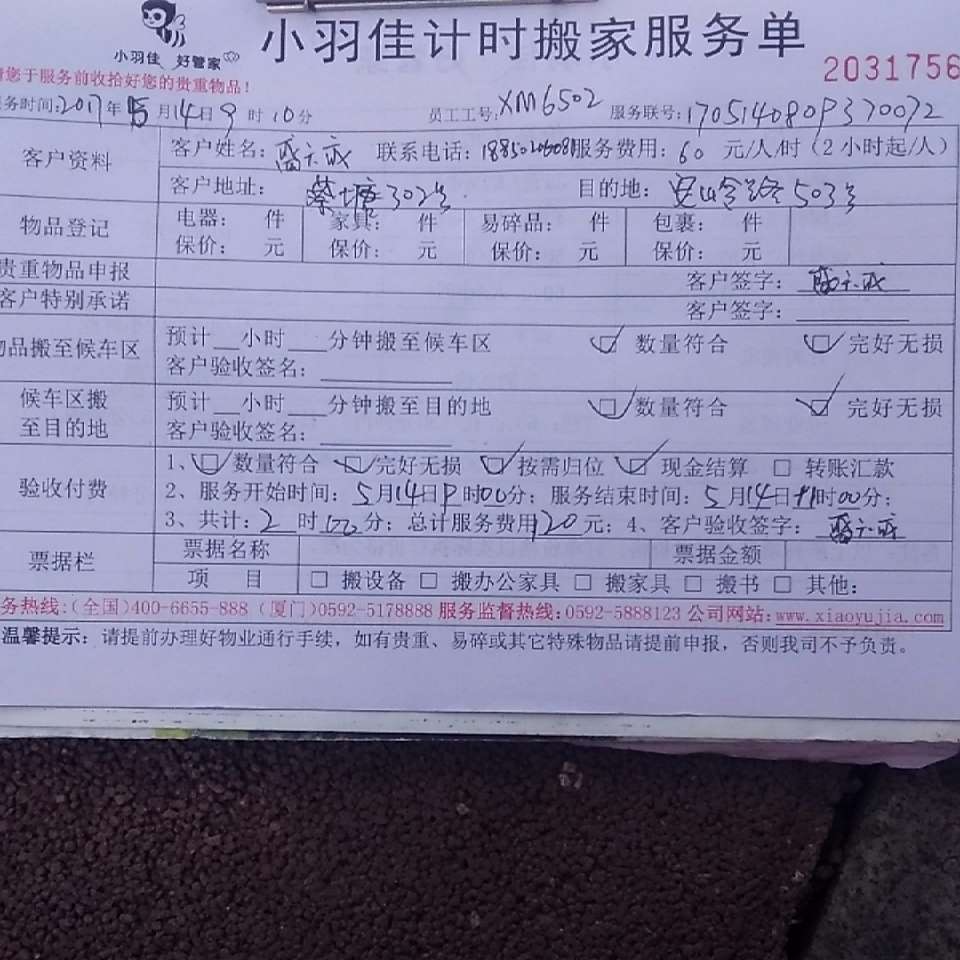 小羽佳 好管家
小羽佳计时搬家服务单
请您于服务前收拾好您的贵重物品！
2031756
务时间：2017年5月14日9时10分 员工工号：XM6502 服务联号：
客户资料
客户姓名： 联系电话： 服务费用：60元/人/时（2小时起/人）
客户地址：蔡塘302号 目的地： 503号
物品登记
电器： 件 家具： 件 易碎品： 件 包裹： 件
保价： 元 保价： 元 保价： 元 保价： 元
贵重物品申报 客户签字：
客户特别承诺 客户签字：
物品搬至候车区
预计__小时___分钟搬至候车区 数量符合 完好无损
客户验收签名：
候车区搬至目的地
预计__小时___分钟搬至目的地 数量符合 完好无损
客户验收签名：
验收付费
1、数量符合 完好无损 按需归位 现金结算 □ 转账汇款
2、服务开始时间：5月14日9时00分；服务结束时间：5月14日11时00分；
3、共计：2时00分；总计服务费用120元；4、客户验收签字：
票据栏
票据名称 票据金额
项 目 □ 搬设备 □ 搬办公家具 □ 搬家具 □ 搬书 □ 其他：
务热线：(全国)400-6655-888（厦门)0592-5178888 服务监督热线：0592-5888123 公司网站：www.xiaoyujia.com
温馨提示：请提前办理好物业通行手续，如有贵重、易碎或其它特殊物品请提前申报，否则我司不予负责。